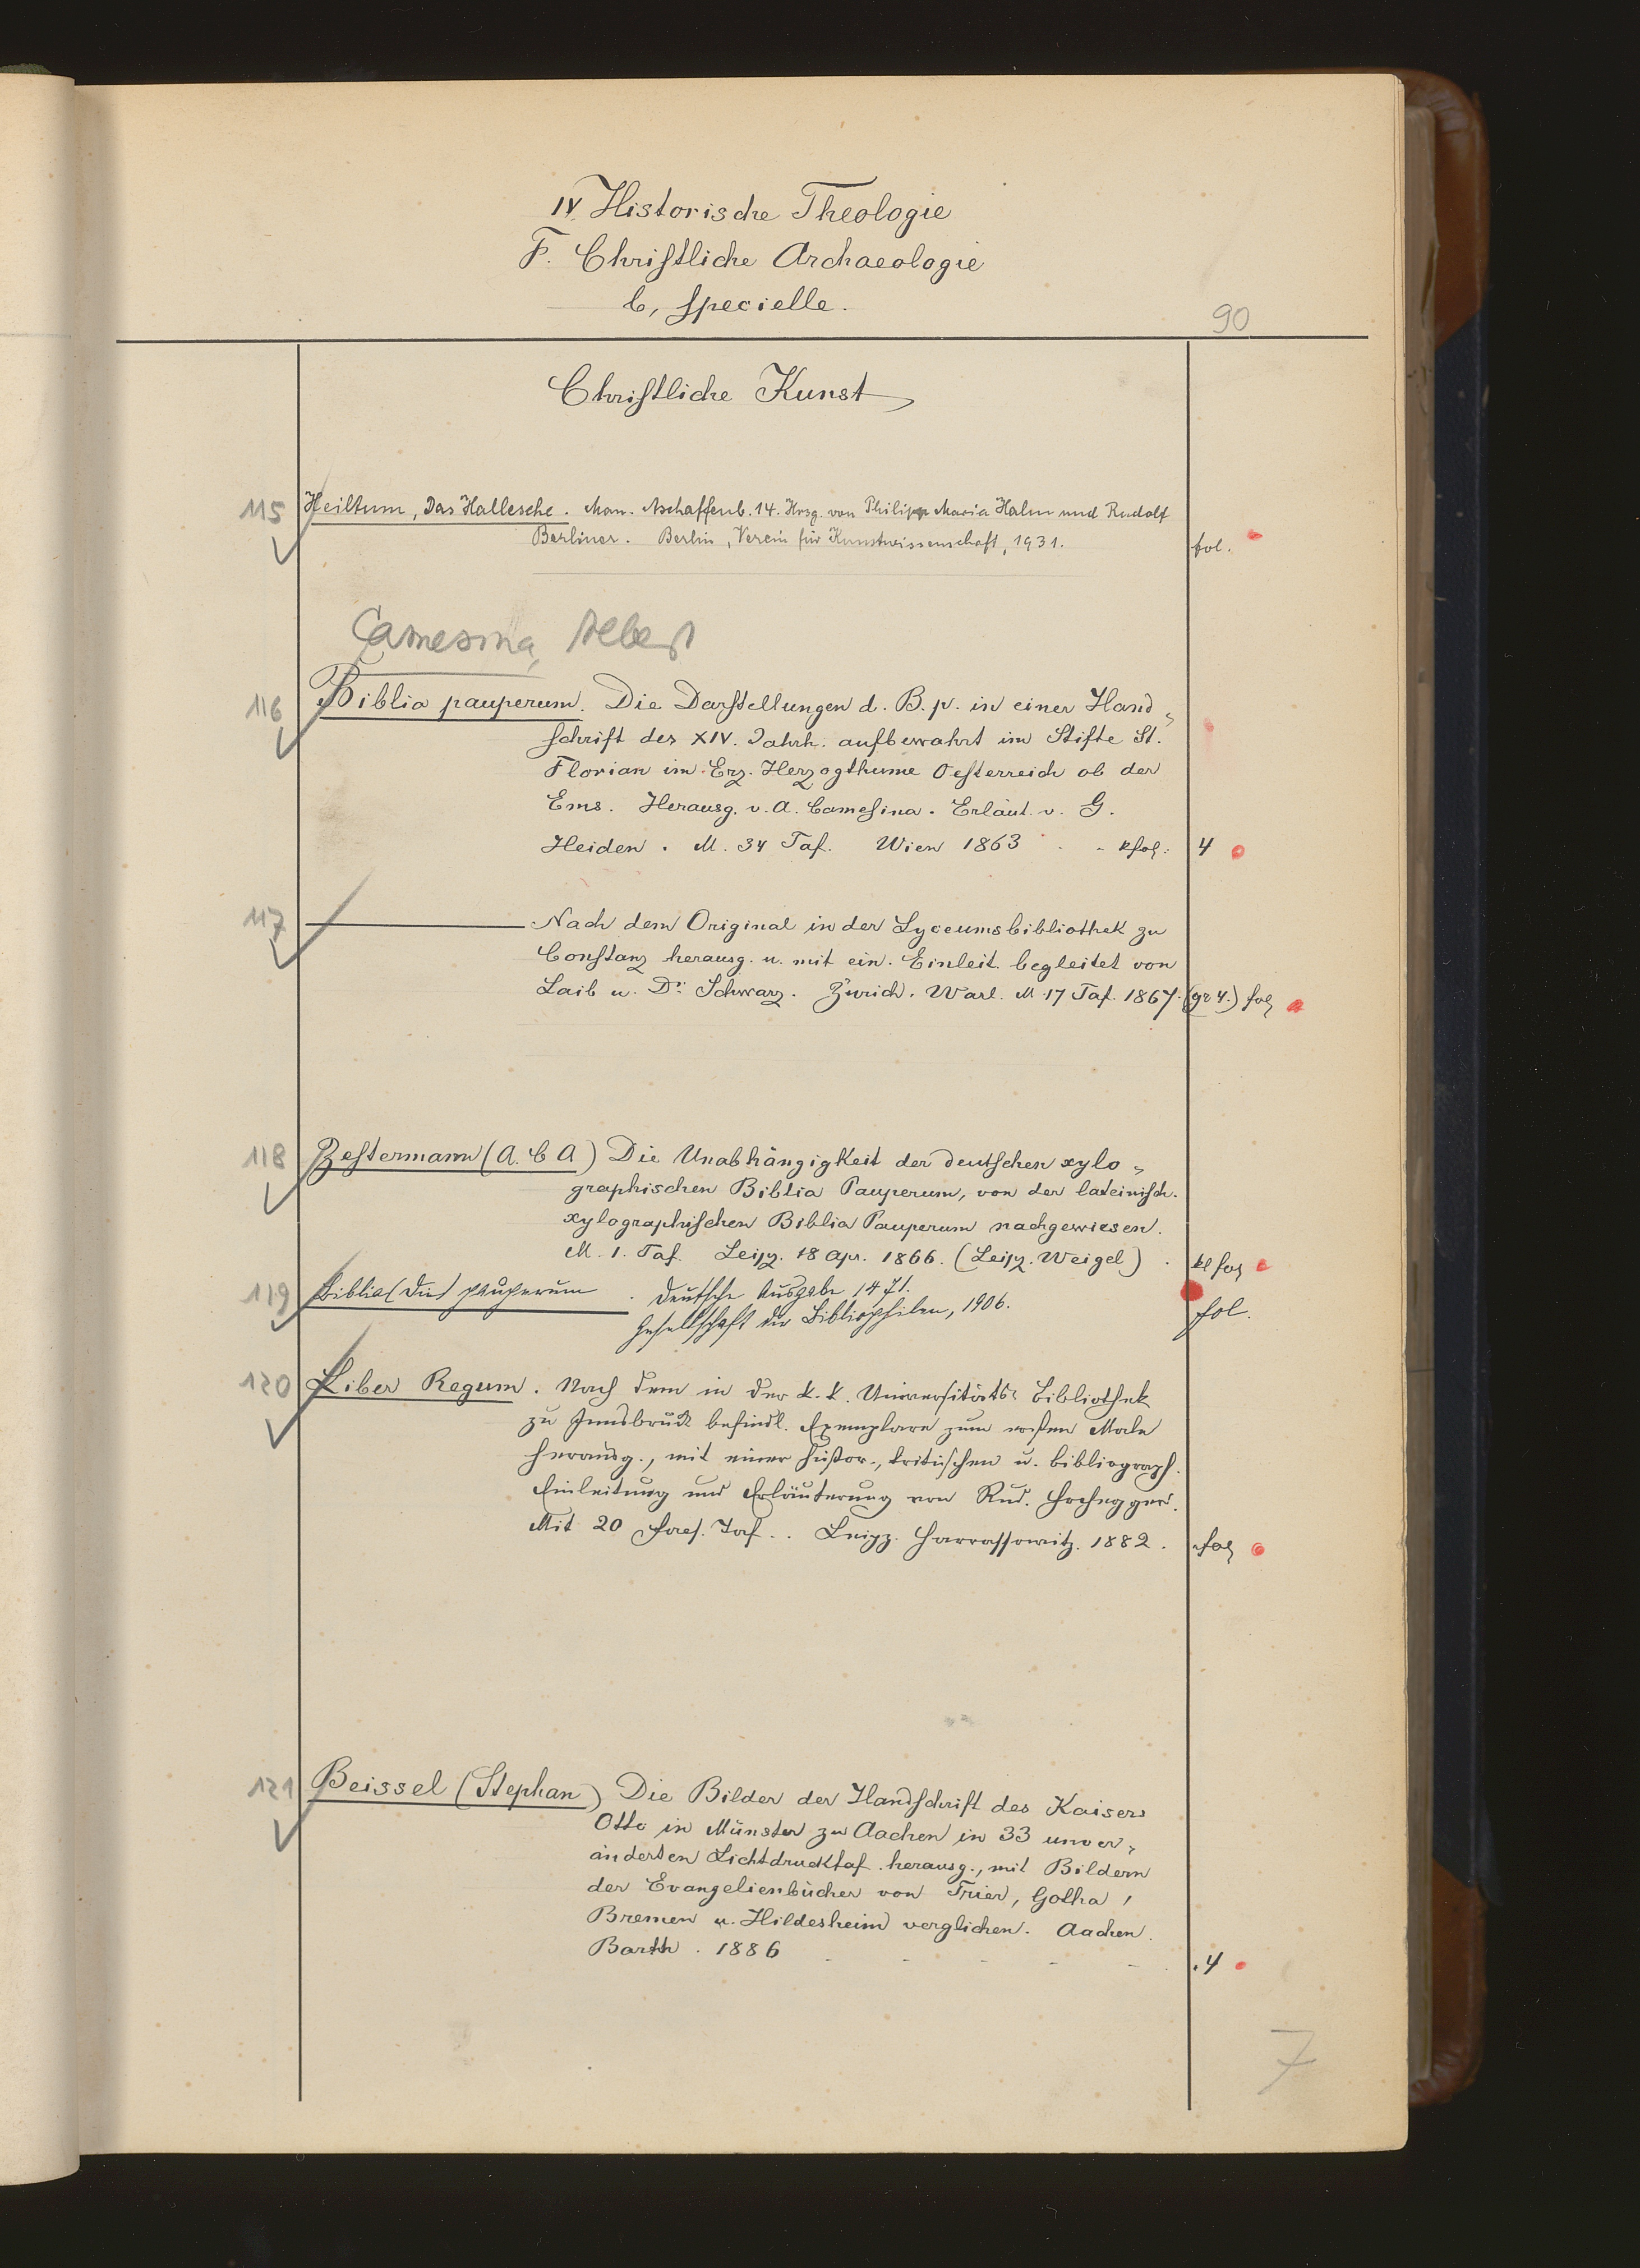 IV. Historische Theologie
F. Christliche Archaeologie
b, specielle.
90
Christliche Kunst
115 Heiltum, Das Hallesche. Man. Aschaffenb. 14. Hrsg. von Philipp Maria Halm und Rudolf
Berliner. Berlin, Verein für Kunstwissenschaft, 1931. fol.
Camesina, Albert
116 Biblia pauperum. Die Darstellungen d. B. p. in einer Hand-
schrift des XIV. Jahrh. aufbewahrt im Stifte St.
Florian im Erz-Herzogthume Oesterreich ob der
Ems. Herausg. v. A. Camesina. Erläut. v. G.
Heiden. M. 34 Taf. Wien 1863 kfol: 4
117 Nach dem Original in der Lyceumsbibliothek zu
Constanz herausg. u. mit ein. Einleit. begleitet von
Laib u. Dr. Schwarz. Zürich. Warl. M. 17 Taf. 1867. (gr 4.) fol
118 Zestermann (A. C A) Die Unabhängigkeit der deutschen xylo-
graphischen Biblia Pauperum, von der lateinisch.
xylographischen Biblia Pauperum nachgewiesen.
M. 1. Taf. Leipz. 18 Apr. 1866. (Leipz. Weigel). kl fol
119 Biblia (Die) pauperum. Deutsche Ausgabe 1471.
Gesellschaft der Bibliophilen, 1906. fol.
120 Liber Regum. Nach dem in der k. k. Universitäts-Bibliothek
zu Innsbruck befindl. Exemplare zum ersten Male
herausg., mit einer histor., kritischen u. bibliograph.
Einleitung und Erläuterung von Rud. Hochegger.
Mit 20 facs. Taf.. Leipz. Harrassowitz. 1882. fol
121 Beissel (Stephan) Die Bilder der Handschrift des Kaisers
Otto in Münster zu Aachen in 33 unver-
änderten Lichtdrucktaf. herausg., mit Bildern
der Evangelienbücher von Trier, Gotha,
Bremen u. Hildesheim verglichen. Aachen.
Barth. 1886 4
7